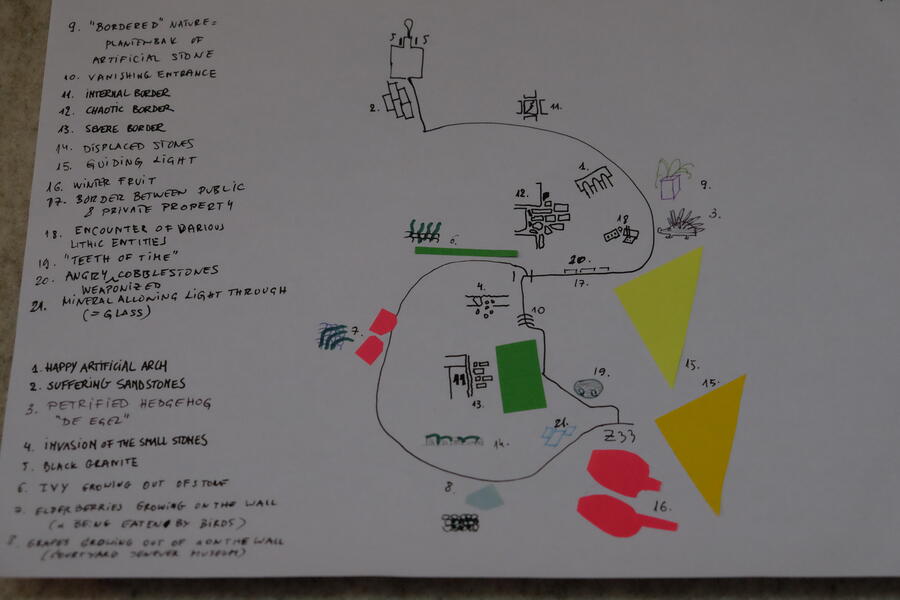 9. "BORDERED" NATURE =
PLANTENBAK OF
ARTIFICIAL STONE
10. VANISHING ENTRANCE
11. INTERNAL BORDER
12. CHAOTIC BORDER
13. SEVERE BORDER
14. DISPLACED STONES
15. GUIDING LIGHT
16. WINTER FRUIT
17. BORDER BETWEEN PUBLIC
& PRIVATE PROPERTY
18. ENCOUNTER OF VARIOUS
LITHIC ENTITIES
19. "TEETH OF TIME"
20. ANGRY COBBLESTONES
WEAPONIZED
21. MINERAL ALLOWING LIGHT THROUGH
(= GLASS)
1. HAPPY ARTIFICIAL ARCH
2. SUFFERING SANDSTONES
3. PETRIFIED HEDGEHOG
"DE EGEL"
4. INVASION OF THE SMALL STONES
5. BLACK GRANITE
6. IVY GROWING OUT OF STONE
7. ELDERBERRIES GROWING ON THE WALL
(& BEING EATEN BY BIRDS)
8. GRAPES GROWING OUT OF & ON THE WALL
(COURTYARD MUSEUM)
5 5
2.
11.
1.
9.
12.
3.
18
6.
20.
17.
4.
10
7.
15.
19.
15.
13.
21.
Z33
14.
8.
16.